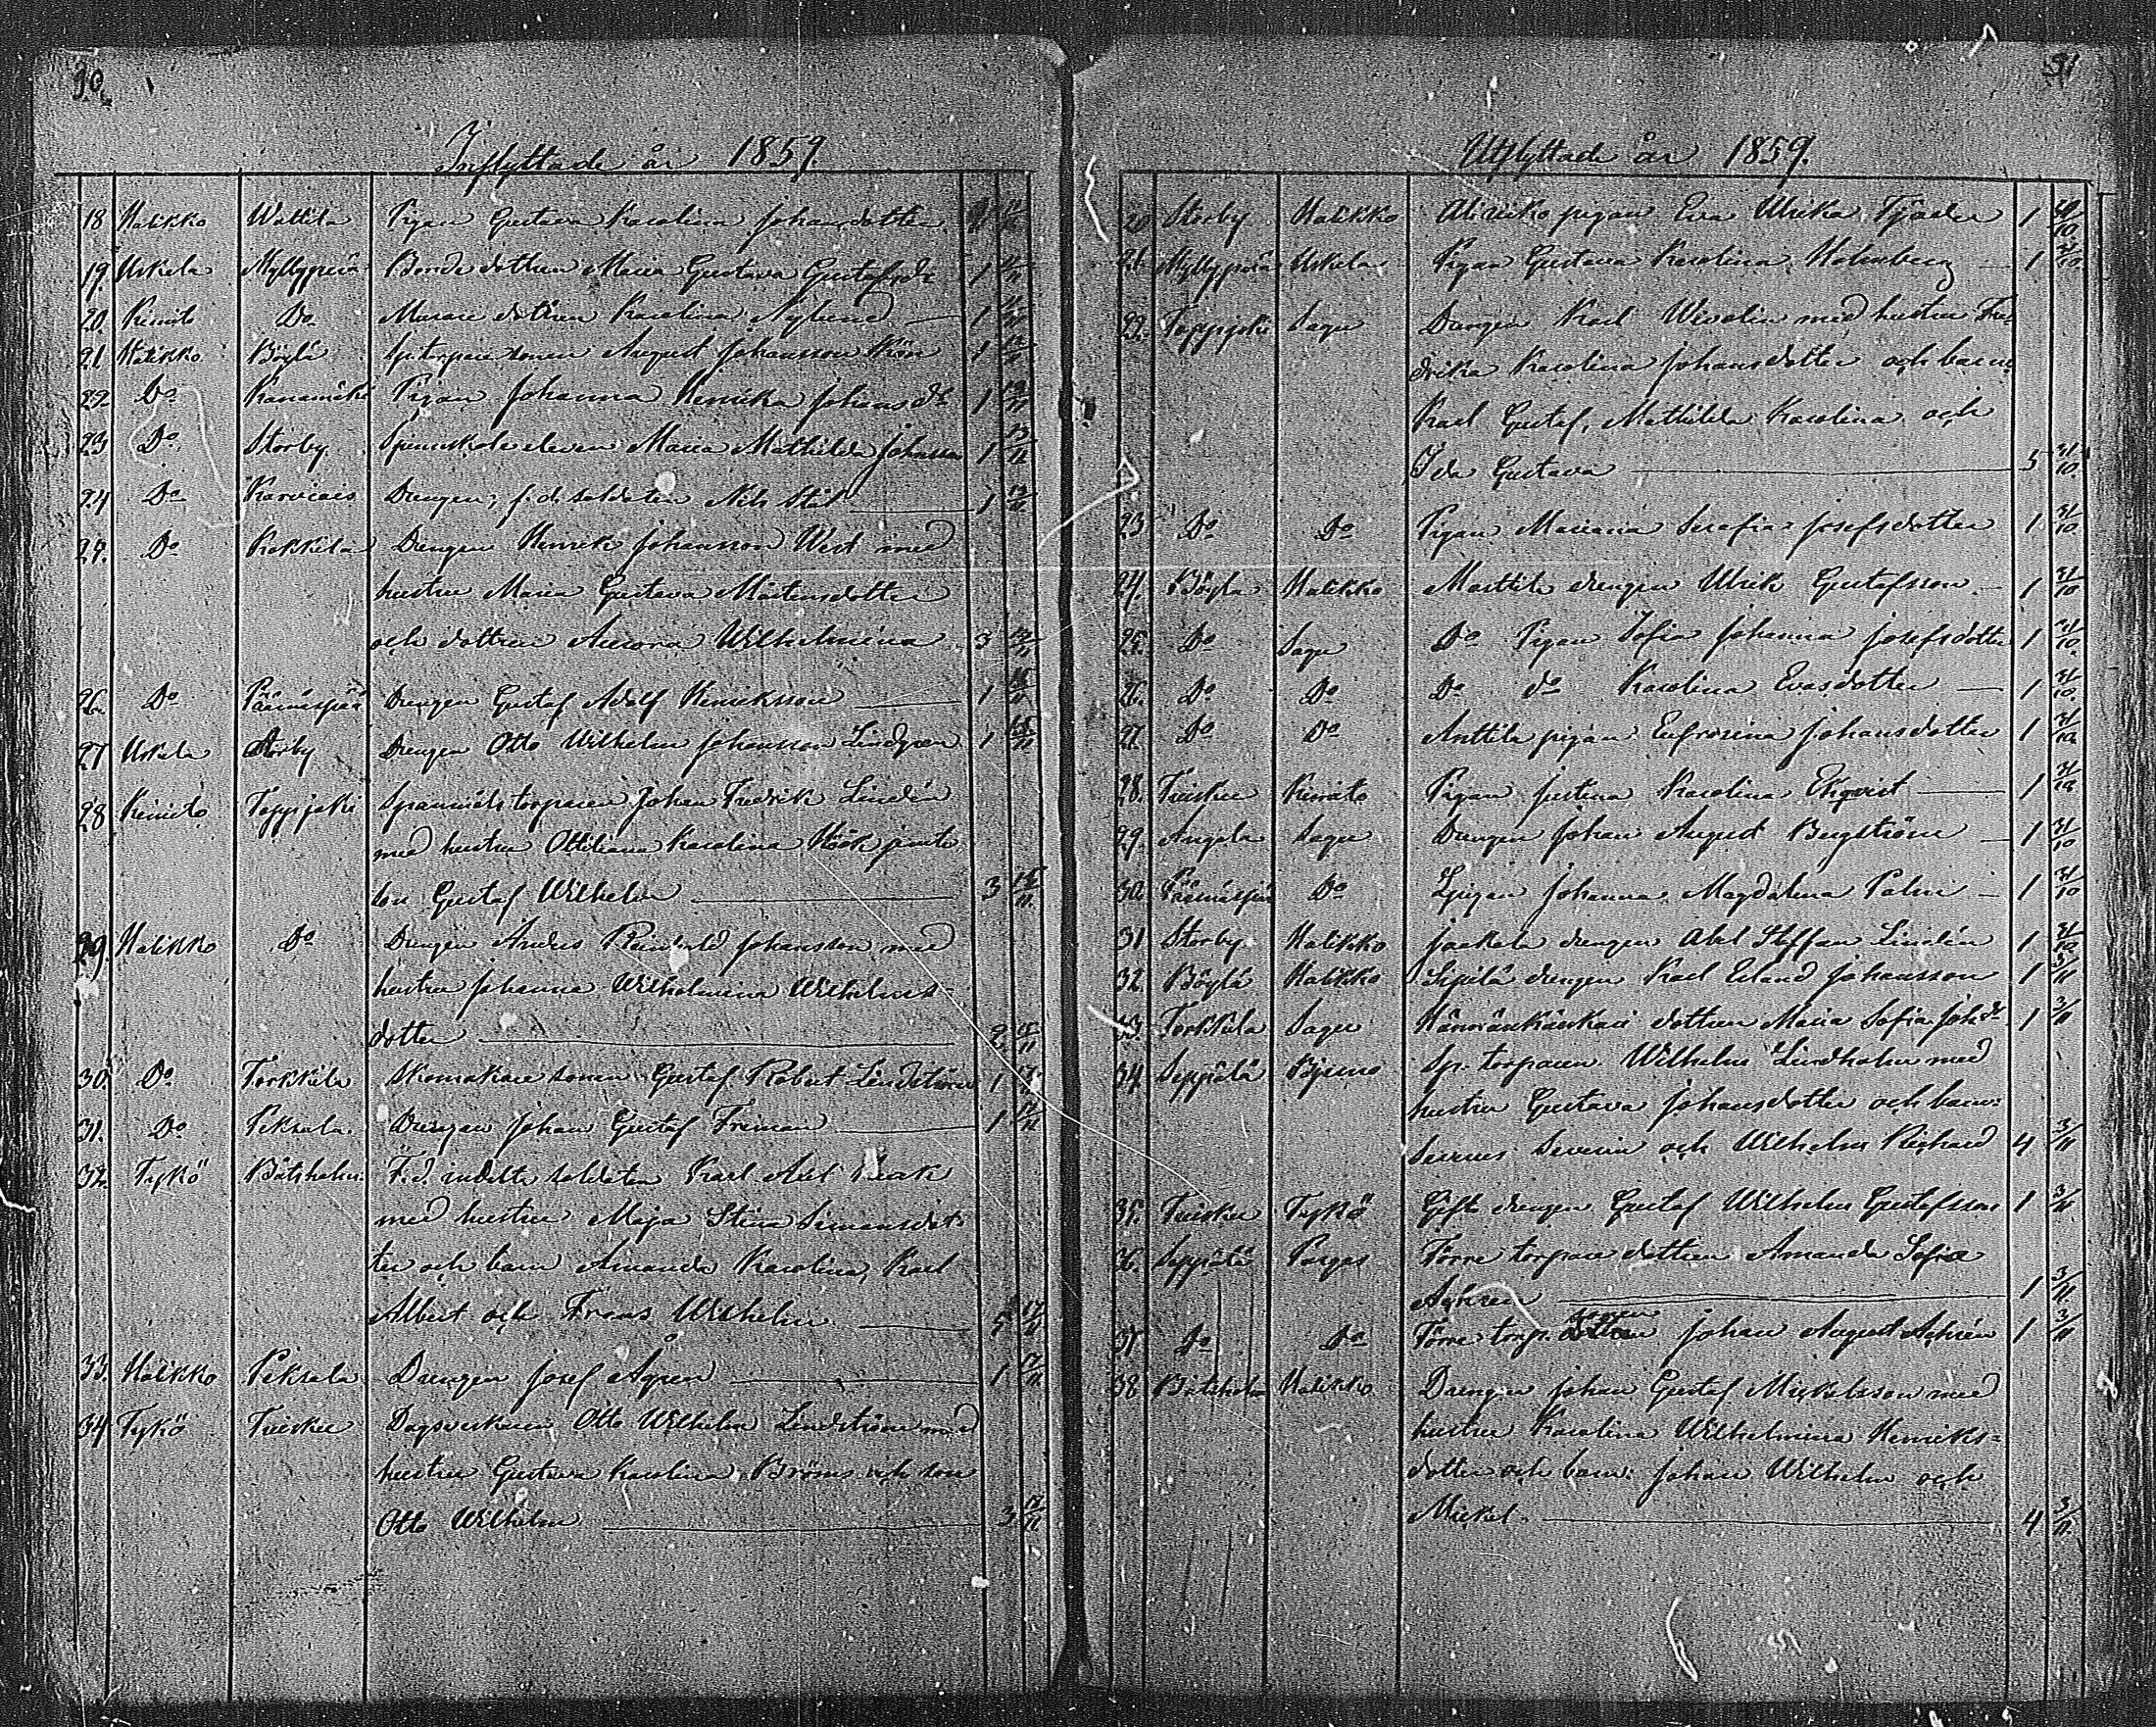 90.
Inflyttade år 1859.
18 Halikko Wattila Pigan Gustava Karolina Johansdotter 1
19. Uskela Myllyperä Bonde dottren Maria Gustava Gustafsdr 1
20. Kimito Do Murare dottren Karolina Nylund 1
21. Halikko Böylä Sp.torpare sonen August Johansson Kön 1 12/11
22. Do Kanamäki Pigan Johanna Henrika Johansdr 1 12/11
23 Do Storby Spinnskole eleven Maria Mathilda Johanss 1 13/11
24 Do Karviais Drengen, f.d. soldaten Nils Stål 1 13/11
25. Do Kokkila Drengen Henrik Johansson West med
hustru Maria Gustava Mårtensdotter
och dottren Aurora Wilhelmina 3
26. Do Päärnäspää Drengen Gustaf Adolf Henriksson 1
27 Uskela Storby Drengen Otto Wilhelm Johansson Lindgren 1 15/11
28 Kimito Tappjoki Spannmåls torparen Johan Fredrik Lindén
med hustru Ottiliana Karolina Höök jemte
son Gustaf Wilhelm 3 15/11.
29. Halikko Do Drengen Anders Reinhold Johansson med
hustru Johanna Wilhelmina Wilhelms
dotter 2 15/11
30. Do Torkkila Skomakare sonen Gustaf Robert Lindström 1 17/11
31. Do Peksala Drengen Johan Gustaf Friman 1 17/11
32. Tykö Båtsholm F.d. indelte soldaten Karl Axel
med hustru Maja Stina Simonsdot
ter och barn Amanda Karolina, Karl
Albert och Frans Wilhelm 5 17/11
33. Halikko Peksala Drengen Josef Ågren 1 17/11
34 Tykö Tuisku Dagsverkaren Otto Wilhelm Lindström med
hustru Gustava Karolina Bröms och son
Otto Wilhelm 3 18/11
91
Utflyttade år 1859.
20 Storby Halikko Alisriko pigan Eva Ulrika Tjäder 1 30/10
21. Myllyperä Uskela Pigan Gustava Karolina Holmberg 1 31/10.
22. Tappjoki Sagu Drengen Karl Wivolin med hustru Fre-
drika Karolina Johansdotter och barn:
Karl Gustaf, Mathilda Karolina och
Ida Gustava 5 31/10.
23 Do Do Pigan Mariana Serafia Josefsdotter 1 31/10.
24. Böyla Halikko Marttila drengen Ulrik Gustafsson 1 31/10
25. Do Sagu Do Pigan Sofia Johanna Josefsdotte 1 31/10.
26. Do Do Do do Karolina Evasdotter 1 31/10.
27. Do Do Anttila pigan Eufrosina Johansdotter 1 31/10
28. Tuisku Kimito Pigan Justina Karolina Ekqvist 1 31/10
29. Angela Sagu Drengen Johan August Bergström 1 31/10
30. Päärnäspää Do Pigan Johanna Magdalena Palm 1 31/10
31 Storby Halikko Jaakola drengen Abel Steffan Lindén 1 31/10
32. Böylä Halikko Sipilä drengen Karl Erland Johansson 1 3/11
33. Torkkila Sagu dottren Maria Sofia Joh.dr 1 3/11
34. Seppälä Bjerno Sp. torparen Wilhelm Lindholm med
hustru Gustava Johansdotter och barn:
Severin och Wilhelm Richard 4 3/11
35. Tuisku Tykö Gifte drengen Gustaf Wilhelm Gustafsson 1 3/11
36. Seppälä Pargas Förre torpare dottren Amanda Sofia
Aghren 1 3/11
37. Do Do Förre torp. dottren sonen Johan August Aghrén 1 3/11
38 Båtsholm Halikko Drengen Johan Gustaf Mickelsson med
hustru Karolina Wilhelmina Henriks=
dotter och barn: Johan Wilhelm och
Mickel. 4 3/11.